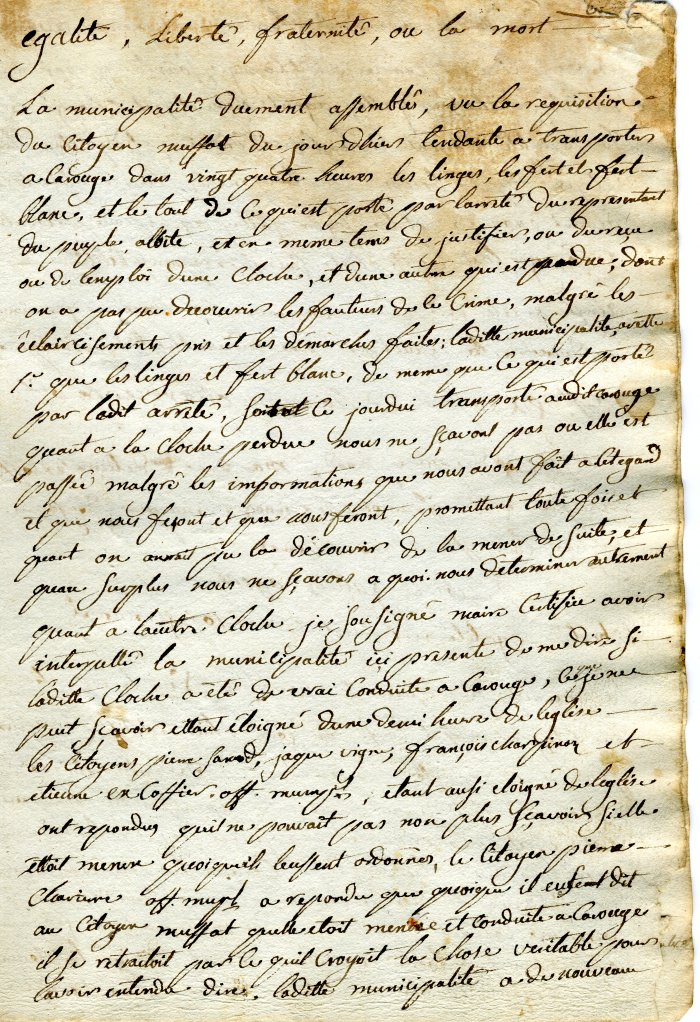 egalité, Liberté, fraternité, ou la mort
La municipalité duement assemblés, vu la requisition
du Citoyen mussat du jour dhiers tendante a transporter
a Carouge dans vingt quatre heures les linges, les fert et fert
blanc, et le tout de ce qui est porté par larreté du representant
du peuple albite, et en meme tems de justifier, ou du reçu
ou de lemploi dune Cloche, et dune autre qui est perdue, dont
on a pas pu decouvrir les fauteurs de le Crime, malgré les
éclaircisements pris et les démarches faites; laditte municipalité arrette
1° que les linges et fert blanc, de meme que ce qui est porté
par ladit arrêté, soient ce jourdui transporté audit Carouge
quant a la Cloche perdue nous ne sçavons pas ou elle est
passée malgré les informations que nous avont fait a let egard
et que nous feront et que nous feront, promettant toute fois et
quant on aurait pu la découvrir de la mener de suite, et
quau surplus nous ne sçavons a quoi nous déterminer autrement
quant a lautre Cloche je sousigné maire Certifie avoir
interpellé la municipalité içi presente de me dire si
laditte Cloche a été de vrai Conduite a Carouge, ce que je ne
puit sçavoir ettant éloigné dune demi heure de leglise
les Citoyens pierre , jaque vigne, françois et
etienne off. , etant ausi eloigné de leglise
ont repondus quil ne pouvait pas non plus sçavoir si elle
ettoit menér quoiquils leussent ordonnés, le Citoyen pierre
off. a repondu que quoique il eussent dit
au Citoyen mussat quelle etoit menée et Conduite a Carouge
il se retractoit par ce quil Croyoit la Chose veritable pour
lavoir entendu dire. laditte municipalité a de nouveau